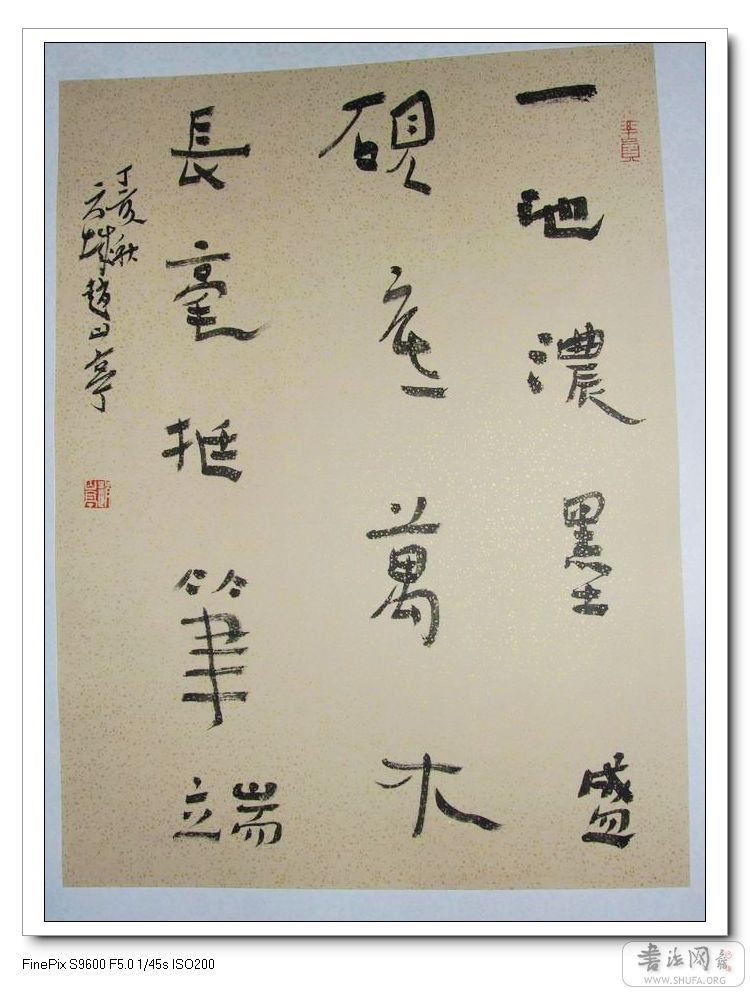 一池濃墨盛
硯底萬木
長毫挺筆端
丁亥秋
云城趙山亭
FinePix S9600 F5.0 1/45s ISO200
书法网
WWW.SHUFA.ORG